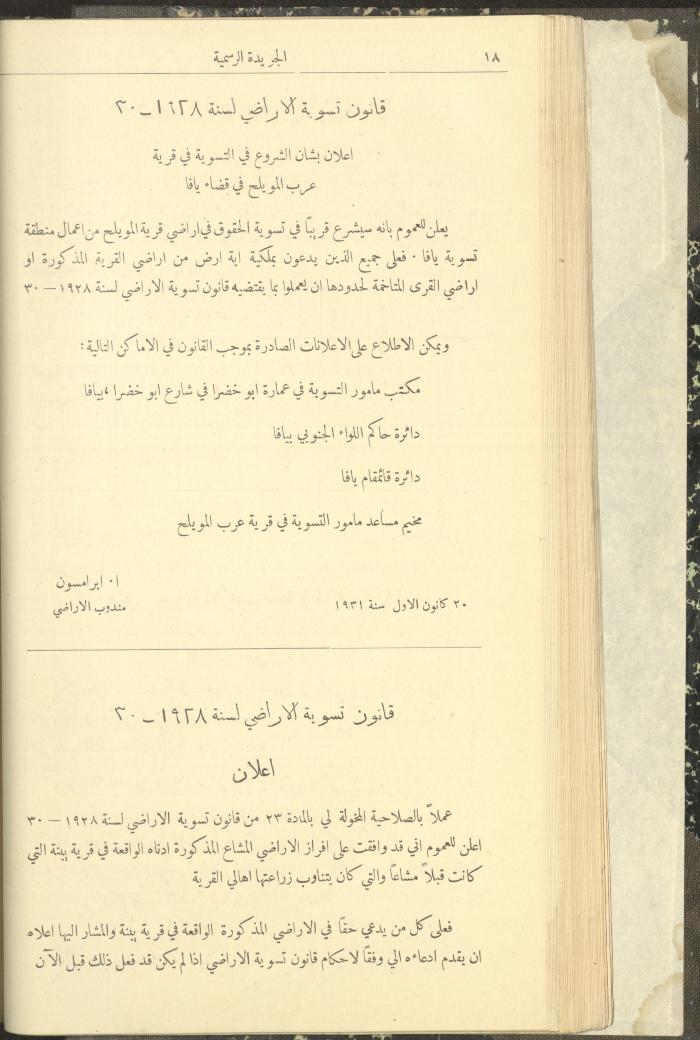 ١٨
الجريدة الرسمية
قانون تسوية الاراضي لسنة ١٩٢٨ـ٣٠
اعلان بشان الشروع في التسوية في قرية
عرب المويلح في قضاء يافا
يعلن للعموم بانه سيشرع قريبًا في تسوية الحقوق في اراضي قرية المويلح من اعمال منطقة
تسوية يافا ٠ فعلى جميع الذين يدعون بملكية اية ارض من اراضي القرية المذكورة او
اراضي القرى المتاخمة لحدودها ان يعملوا بما يقتضيه قانون تسوية الاراضي لسنة ١٩٢٨ — ٣٠
ويمكن الاطلاع على الاعلانات الصادرة بموجب القانون في الاماكن التالية:
مكتب مامور التسوية في عمارة ابو خضرا في شارع ابو خضرا ،بيافا
دائرة حاكم اللواء الجنوبي بيافا
دائرة قائمقام يافا
مخيم مساعد مامور التسوية في قرية عرب المويلح
ا٠ ابرامسون
٢٠ كانون الاول سنة ١٩٣١
مندوب الاراضي
قانون تسوية الاراضي لسنة ١٩٢٨ـ٣٠
اعلان
عملاً بالصلاحية المخولة لي بالمادة ٢٣ من قانون تسوية الاراضي لسنة ١٩٢٨ — ٣٠
اعلن للعموم اني قد وافقت على افراز الاراضي المشاع المذكورة ادناه الواقعة في قرية يبنة التي
كانت قبلاً مشاعًا والتي كان يتناوب زراعتها اهالي القرية
فعلى كل من يدعي حقًا في الاراضي المذكورة الواقعة في قرية يبنة والمشار اليها اعلاه
ان يقدم ادعاءه الي وفقًا لاحكام قانون تسوية الاراضي اذا لم يكن قد فعل ذلك قبل الآن